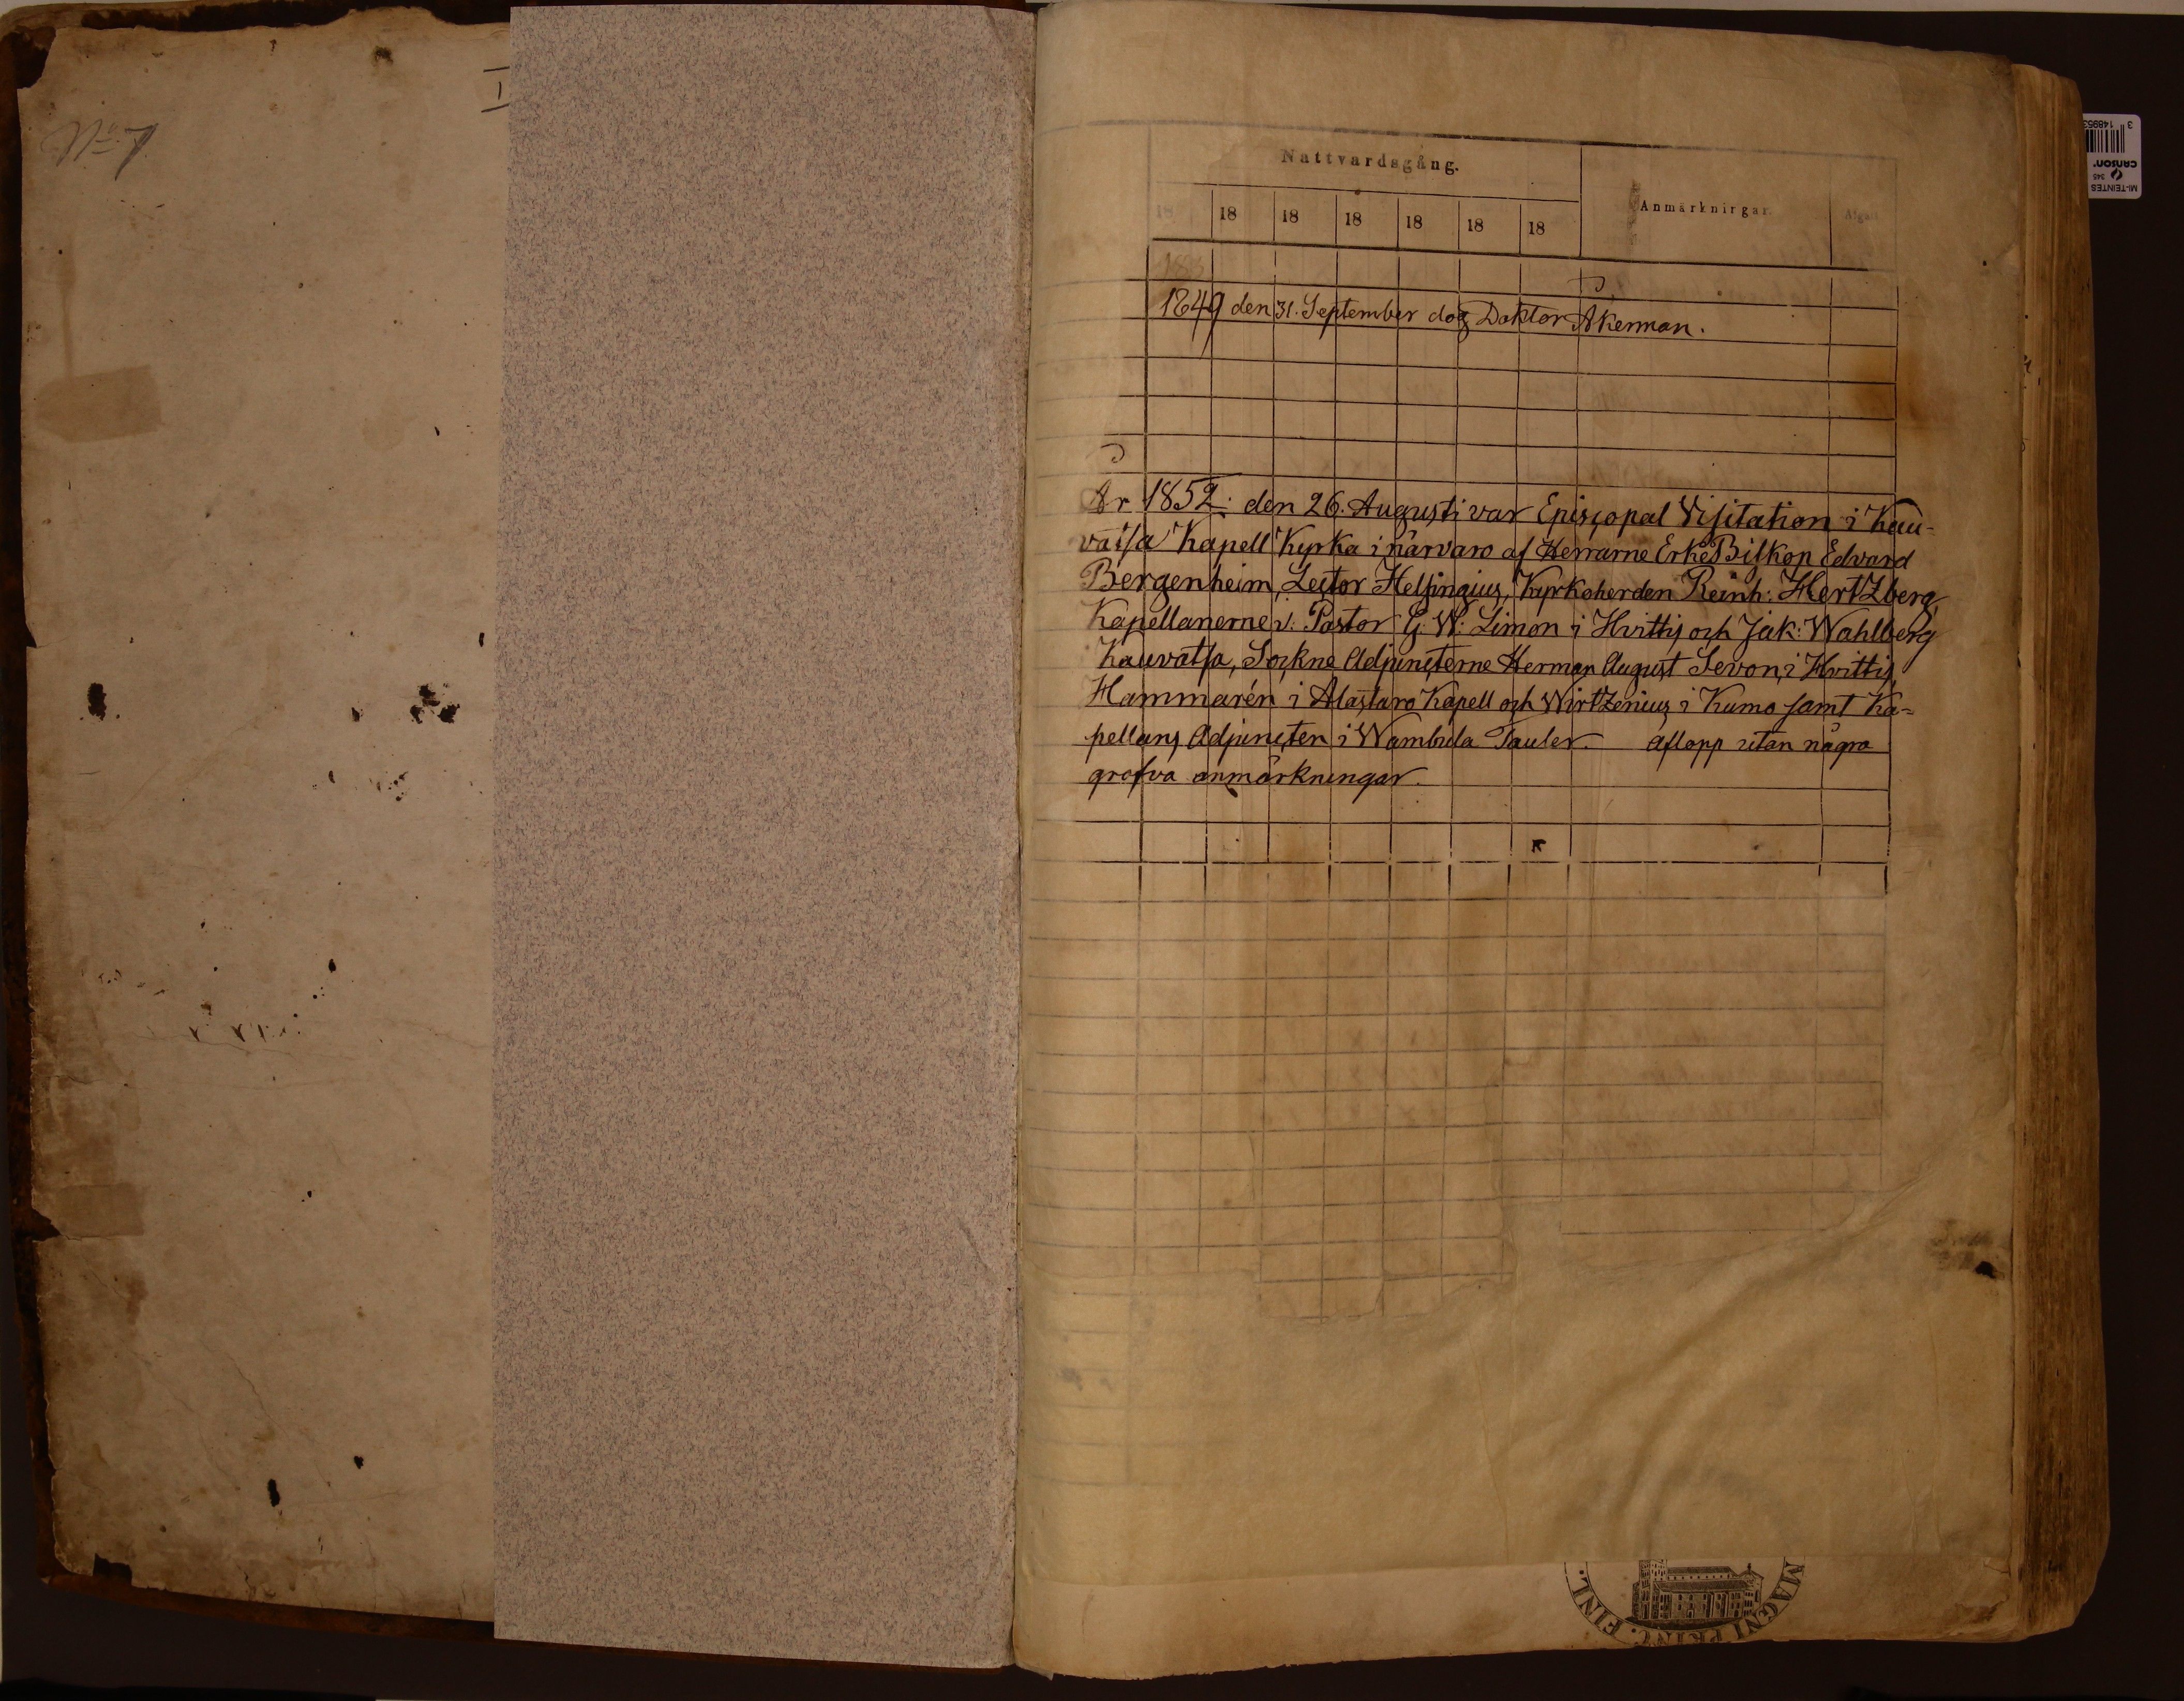 No 1.
I
Nattvardsgång.
Anmärkningar.
Afgått
18 18 18 18 18 18 18
1849 den 31. September dog Doktor Åkerman.
År 1852: den 26. Augusti var Episcopal Visitation i Kau-
vatsa Kapell Kyrka i närvaro af Herrarne ErkeBiskop Edvard
Bergenheim, Lector Helsingius, Kyrkoherden Reinh: Hertzberg,
Kapellanerne v: Pastor G: W: Limon i Hvittis och Jak: Wahlberg
Kauvatsa, Sockne Adjuncterne Herman August Sevon, i Hvittis,
Hammarén i Alastaro Kapell och Wirtzenius i Kumo samt Ka=
pellans Adjuncten i Wambula Pauler. Aflopp utan några
grofva anmärkningar.
MAGNI PRINC. FINL.
MI-TEINTES
345
CANSON
3 148953